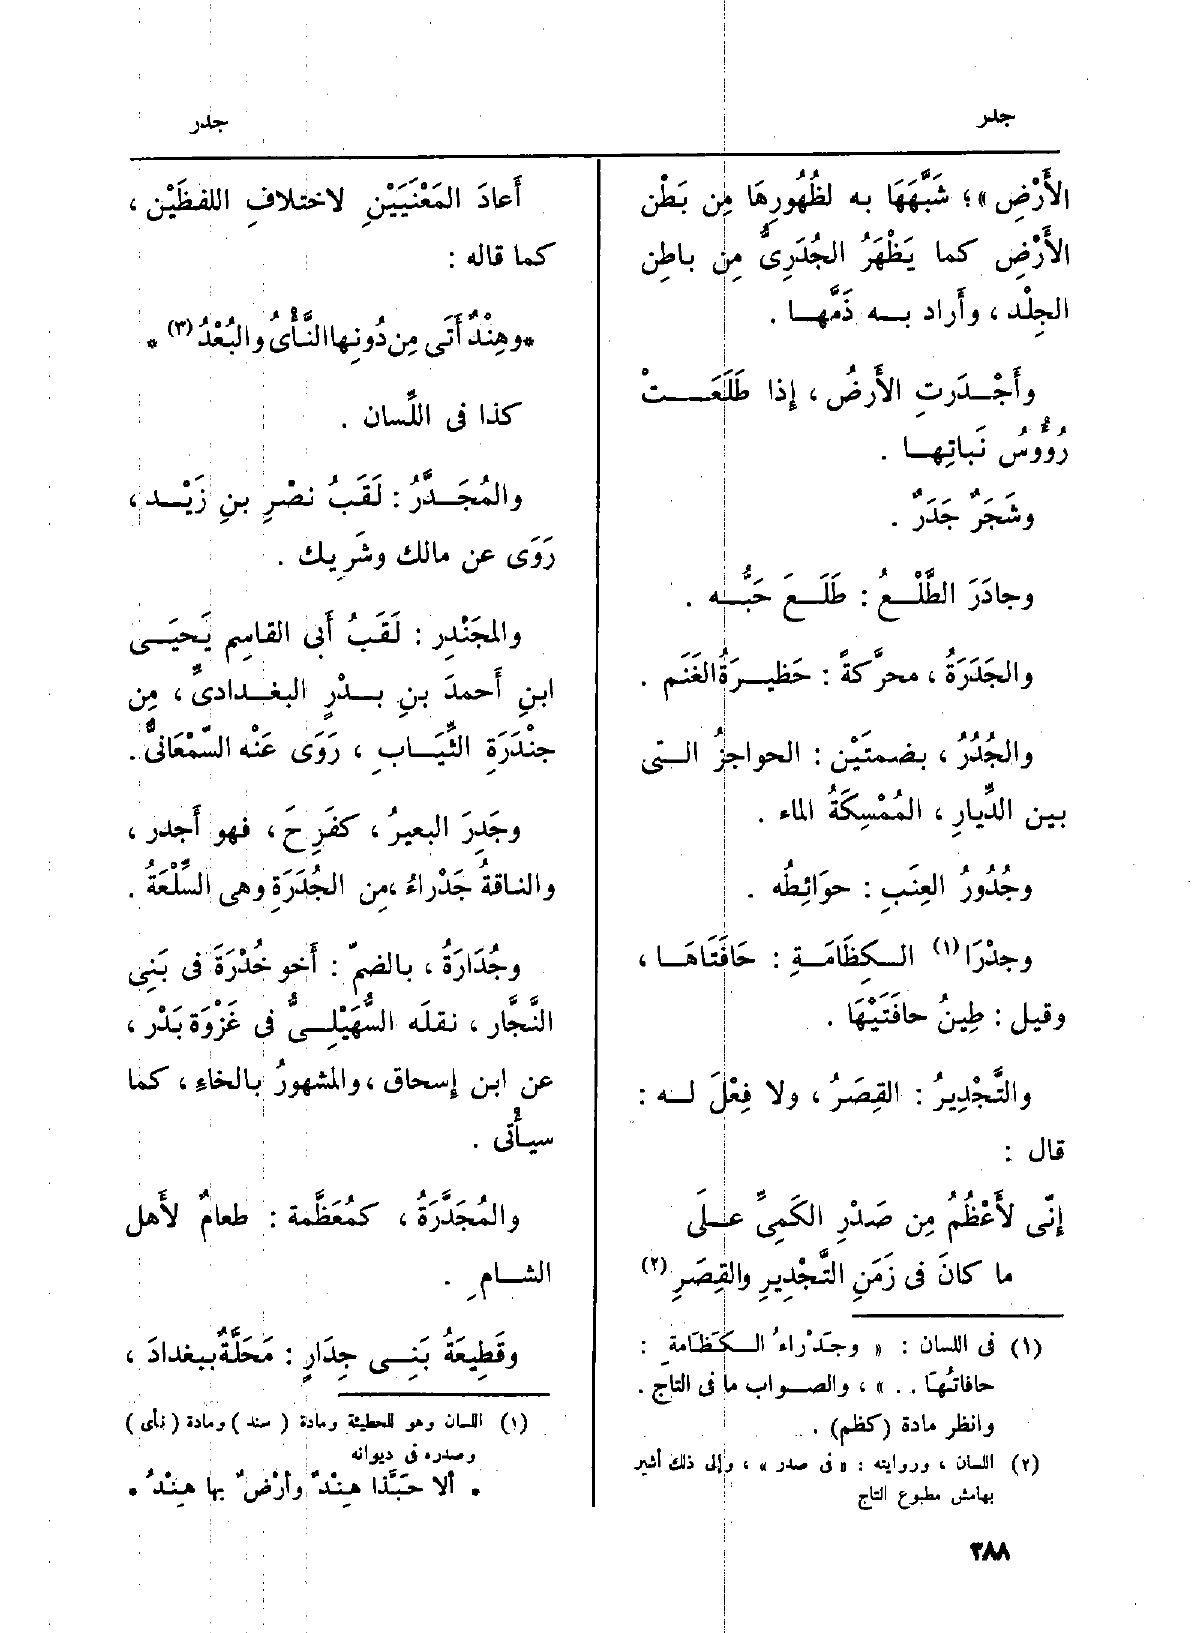 جدر
جدر
الأَرْضِ »؛ شَبَّهَهَا به لظُهُورِهَا مِن بَطْن
الأَرْضِ كما يَظْهَرُ الجُدَرِىُّ مِن باطِن
الجِلْد ، وأَراد بـه ذَمَّهـا .
وأَجْـدَرتِ الأَرضُ ، إِذا طَلَعَــتْ
رُؤُوسُ نَباتِهـا .
وشَجَرٌ جَدَرٌ .
وجادَرَ الطَّلْـعُ : طَلَـعَ حَبُّـه .
والجَدَرَةُ ، محرَّكةً : حَظِيـرَةُ الغَنَم .
والجُدُرُ ، بضمتَيْن : الحواجِزُ الـتى
بين الدِّيارِ ، المُمْسِكَةُ الماء .
وجُدُورُ العِنَبِ : حوَائِطُه .
وجدْرَا (١) الـكِظَامَـةِ : حَافَتَاهَـا ،
وقيل : طِينُ حافَتَيْهَا .
والتَّجْدِيرُ : القِصَرُ ، ولا فِعْلَ لـه :
قال :
إِنّى لأَعْظُمُ مِن صَدْرِ الكَمِىِّ علـى
ما كانَ فى زَمَنِ التَّجْدِيرِ والقِصَرِ (٢)
(١) فى اللسان : « وجَدْراءُ الـكَظَامَةِ :
حافاتُها . . » ، والصـواب ما فى التاج .
وانظر مادة (كظم) .
(٢) اللسان ، وروايته : « فى صدر » ، وإلى ذلك أشير
بهامش مطبوع التاج
أَعادَ المَعْنَيَيْنِ لاختلافِ اللفظَيْن ،
كما قاله :
*وهِنْدٌ أَتَى مِن دُونِها النَّأْىُ والبُعْدُ (٣) *
كذا فى اللِّسان .
والمُجَـدَّرُ : لَقَبُ نصْرِ بنِ زَيْـد ،
رَوَى عن مالك وشَرِيك .
والمجَنْدِر : لَقَبُ أَبى القاسِم يَحيَـى
ابنِ أَحمدَ بنِ بـدْرٍ البغـدادىِّ ، مِن
جنْدَرَةِ الثِّيَـابِ ، رَوَى عَنْه السَّمْعَانىُّ .
وجَدِرَ البعيرُ ، كفَرِحَ ، فهو أَجدر ،
والناقةُ جَدْراءُ ، مِن الجُدَرَةِ وهى السِّلْعَةُ .
وجُدَارَةُ ، بالضمّ : أَخو خُدْرَةَ فى بَنِى
النَّجَّار ، نقلَه السُّهَيْلـىُّ فى غَزْوَة بَدْر ،
عن ابن إِسحاق ، والمشهورُ بالخاءِ ، كما
سيأْتى .
والمُجَدَّرَةُ ، كمُعَظَّمة : طعامٌ لأَهل
الشـامِ .
وقَطِيعَةُ بَنِـى جِدَارٍ : مَحَلَّةٌ ببغدادَ ،
(١) اللسان وهو للحطيئة ومادة ( سند ) ومادة ( نأى )
وصدره فى ديوانه
* ألا حَبَّذا هِنْدٌ وأرْضٌ بها هِنْدُ *
٣٨٨